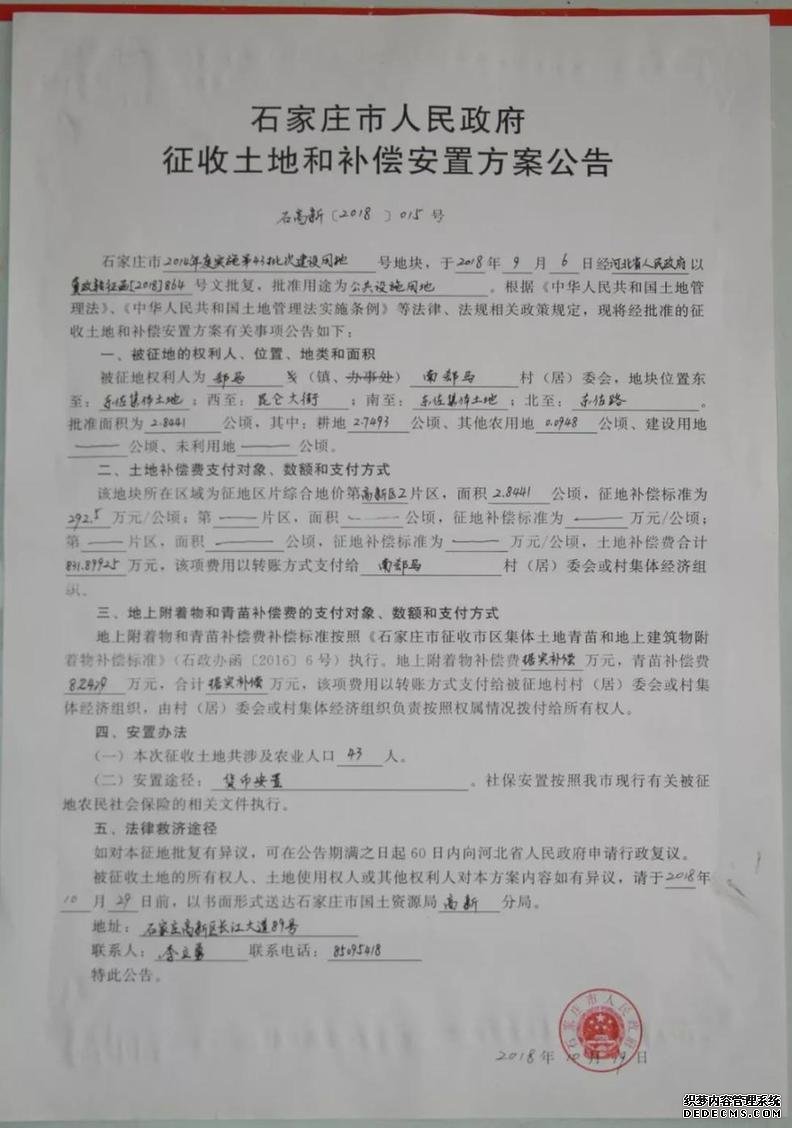 石家庄市人民政府
征收土地和补偿安置方案公告
石高新〔2018〕015号
石家庄市2014年度实施第43批次建设用地号地块，于2018年9月6日经河北省人民政府以
冀政转征函[2018]864号文批复，批准用途为公共设施用地。根据《中华人民共和国土地管
理法》、《中华人民共和国土地管理法实施条例》等法律、法规相关政策规定，现将经批准的征
收土地和补偿安置方案有关事项公告如下：
一、被征地的权利人、位置、地类和面积
被征地权利人为郄马乡（镇、办事处）南郄马村（居）委会，地块位置东
至：东佐集体土地；西至：昆仑大街；南至：东佐集体土地；北至：东佐路。
批准面积为2.8441公顷，其中：耕地2.7493公顷、其他农用地0.0948公顷、建设用地
——公顷、未利用地——公顷。
二、土地补偿费支付对象、数额和支付方式
该地块所在区域为征地区片综合地价第高新区2片区，面积2.8441公顷，征地补偿标准为
292.5万元/公顷；第——片区，面积——公顷，征地补偿标准为——万元/公顷；
第——片区，面积——公顷，征地补偿标准为——万元/公顷，土地补偿费合计
831.89925万元，该项费用以转账方式支付给南郄马村（居）委会或村集体经济组
织。
三、地上附着物和青苗补偿费的支付对象、数额和支付方式
地上附着物和青苗补偿费补偿标准按照《石家庄市征收市区集体土地青苗和地上建筑物附
着物补偿标准》（石政办函〔2016〕6号）执行。地上附着物补偿费据实补偿万元，青苗补偿费
8.2479万元，合计据实补偿万元，该项费用以转账方式支付给被征地村村（居）委会或村集
体经济组织，由村（居）委会或村集体经济组织负责按照权属情况拨付给所有权人。
四、安置办法
（一）本次征收土地共涉及农业人口43人。
（二）安置途径：货币安置。社保安置按照我市现行有关被征
地农民社会保险的相关文件执行。
五、法律救济途径
如对本征地批复有异议，可在公告期满之日起60日内向河北省人民政府申请行政复议。
被征收土地的所有权人、土地使用权人或其他权利人对本方案内容如有异议，请于2018年
10月29日前，以书面形式送达石家庄市国土资源局高新分局。
地址：石家庄高新区长江大道89号
联系人：李立勇联系电话：85095418
特此公告。
石家庄市人民政府
2018年10月19日
织梦内容管理系统
DEDECMS.COM